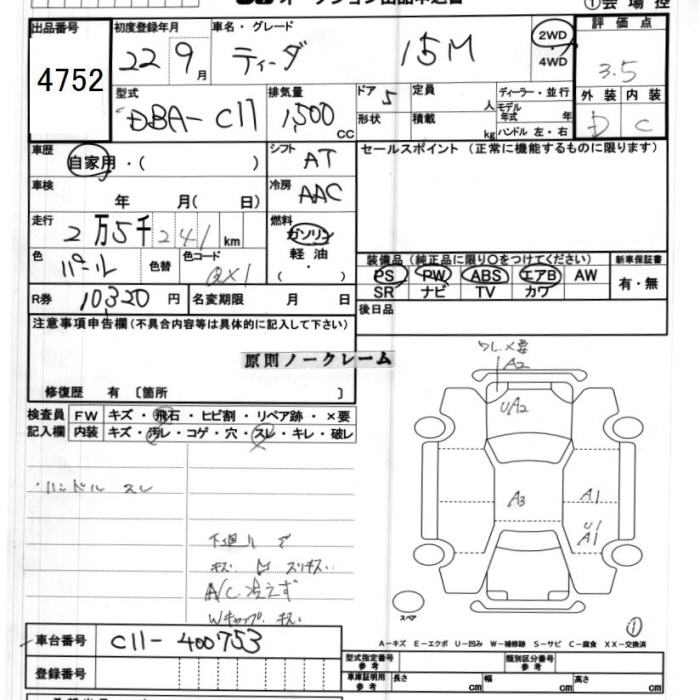 オークション出品申込書
① 会 場 控
出品番号 初度登録年月 車名・グレード 2WD ・ 4WD 評 価 点
4752 22 9月 ティーダ 15M 3.5
型式 排気量 ドア 5 定員 人 ディーラー・並行 外 装 内 装
DBA-C11 1,500 CC 形状 積載 kg モデル年式 年 ハンドル 左・右 D C
車歴 自家用・( ) シフト AT セールスポイント (正常に機能するものに限ります)
車検 年 月( 日) 冷房 AAC
走行 2万5千241km 燃料 ガソリン 軽 油 ( ・ )
色 パール 色替 色コード QX1 装備品 (純正品に限り○をつけてください) 新車保証書
PS PW ABS エアB AW 有・無
SR ナビ TV カワ
R券 10320 円 名変期限 月 日 後日品
注意事項申告欄 (不具合内容等は具体的に記入して下さい)
原則ノークレーム
修復歴 有 〔箇所 〕
検査員 FW キズ・飛石・ヒビ割・リペア跡・×要
記入欄 内装 キズ・汚レ・コゲ・穴・スレ・キレ・破レ
・ハンドル スレ
下廻り サ
キズ スリキズ
A/C 冷えず
Wキャップ キズ
ワレ×要
A2
UA2
A3
A1
U1
A1
スペア
①
A-キズ E-エクボ U-凹み W-補修跡 S-サビ C-腐食 XX-交換済
車台番号 C11-400753
型式指定番号 参考 類別区分番号 参考
登録番号 車庫証明用 参考 長さ cm 幅 cm 高さ cm